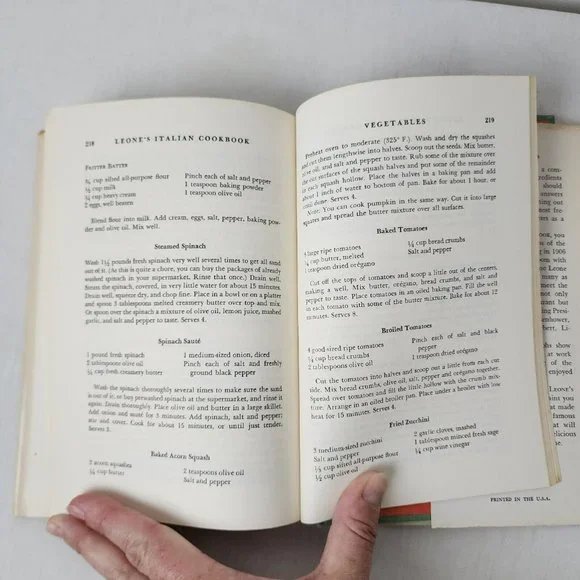 218 LEONE'S ITALIAN COOKBOOK
FRITTER BATTER
¾ cup sifted all-purpose flour
½ cup milk
¼ cup heavy cream
2 eggs, well beaten
Pinch each of salt and pepper
1 teaspoon baking powder
1 teaspoon olive oil
Blend flour into milk. Add cream, eggs, salt, pepper, baking pow-
der and olive oil. Mix well.
Steamed Spinach
Wash 1½ pounds fresh spinach very well several times to get all sand
out of it. (As this is quite a chore, you can buy the packages of already
washed spinach in your supermarket. Rinse that once.) Drain well.
Steam the spinach, covered, in very little water for about 15 minutes.
Drain well, squeeze dry, and chop fine. Place in a bowl or on a platter
and spoon 3 tablespoons melted creamery butter over top and mix.
Or spoon over the spinach a mixture of olive oil, lemon juice, mashed
garlic, and salt and pepper to taste. Serves 4.
Spinach Sauté
1 pound fresh spinach
2 tablespoons olive oil
¼ cup fresh creamery butter
1 medium-sized onion, diced
Pinch each of salt and freshly
ground black pepper
Wash the spinach thoroughly several times to make sure the sand
is out of it, or buy prewashed spinach at the supermarket, and rinse it
again. Drain thoroughly. Place olive oil and butter in a large skillet.
Add onion and sauté for 3 minutes. Add spinach, salt and pepper;
stir and cover. Cook for about 15 minutes, or until just tender.
Serves 2.
Baked Acorn Squash
2 acorn squashes
¼ cup butter
2 teaspoons olive oil
Salt and pepper
VEGETABLES 219
Preheat oven to moderate (325° F.). Wash and dry the squashes
and cut them lengthwise into halves. Scoop out the seeds. Mix butter,
olive oil, and salt and pepper to taste. Rub some of the mixture over
the cut surfaces of the squash halves and put some of the remainder
in each squash hollow. Place the halves in a baking pan and add
about 1 inch of water to bottom of pan. Bake for about 1 hour, or
until done. Serves 4.
Note: You can cook pumpkin in the same way. Cut it into large
squares and spread the butter mixture over all surfaces.
Baked Tomatoes
4 large ripe tomatoes
¼ cup butter, melted
1 teaspoon dried orégano
¼ cup bread crumbs
Salt and pepper
Cut off the tops of tomatoes and scoop a little out of the centers,
making a well. Mix butter, orégano, bread crumbs, and salt and
pepper to taste. Place tomatoes in an oiled baking pan. Fill the well
in each tomato with some of the butter mixture. Bake for about 12
minutes. Serves 8.
Broiled Tomatoes
4 good-sized ripe tomatoes
¼ cup bread crumbs
2 tablespoons olive oil
Pinch each of salt and black
pepper
1 teaspoon dried orégano
Cut the tomatoes into halves and scoop out a little from each cut
side. Mix bread crumbs, olive oil, salt, pepper and orégano together.
Spread over tomatoes and fill the little hollow with the crumb mix-
ture. Arrange in an oiled broiler pan. Place under a broiler with low
heat for 15 minutes. Serves 4.
Fried Zucchini
3 medium-sized zucchini
Salt and pepper
½ cup sifted all-purpose flour
½ cup olive oil
2 garlic cloves, mashed
1 tablespoon minced fresh sage
¼ cup wine vinegar
PRINTED IN THE U.S.A.